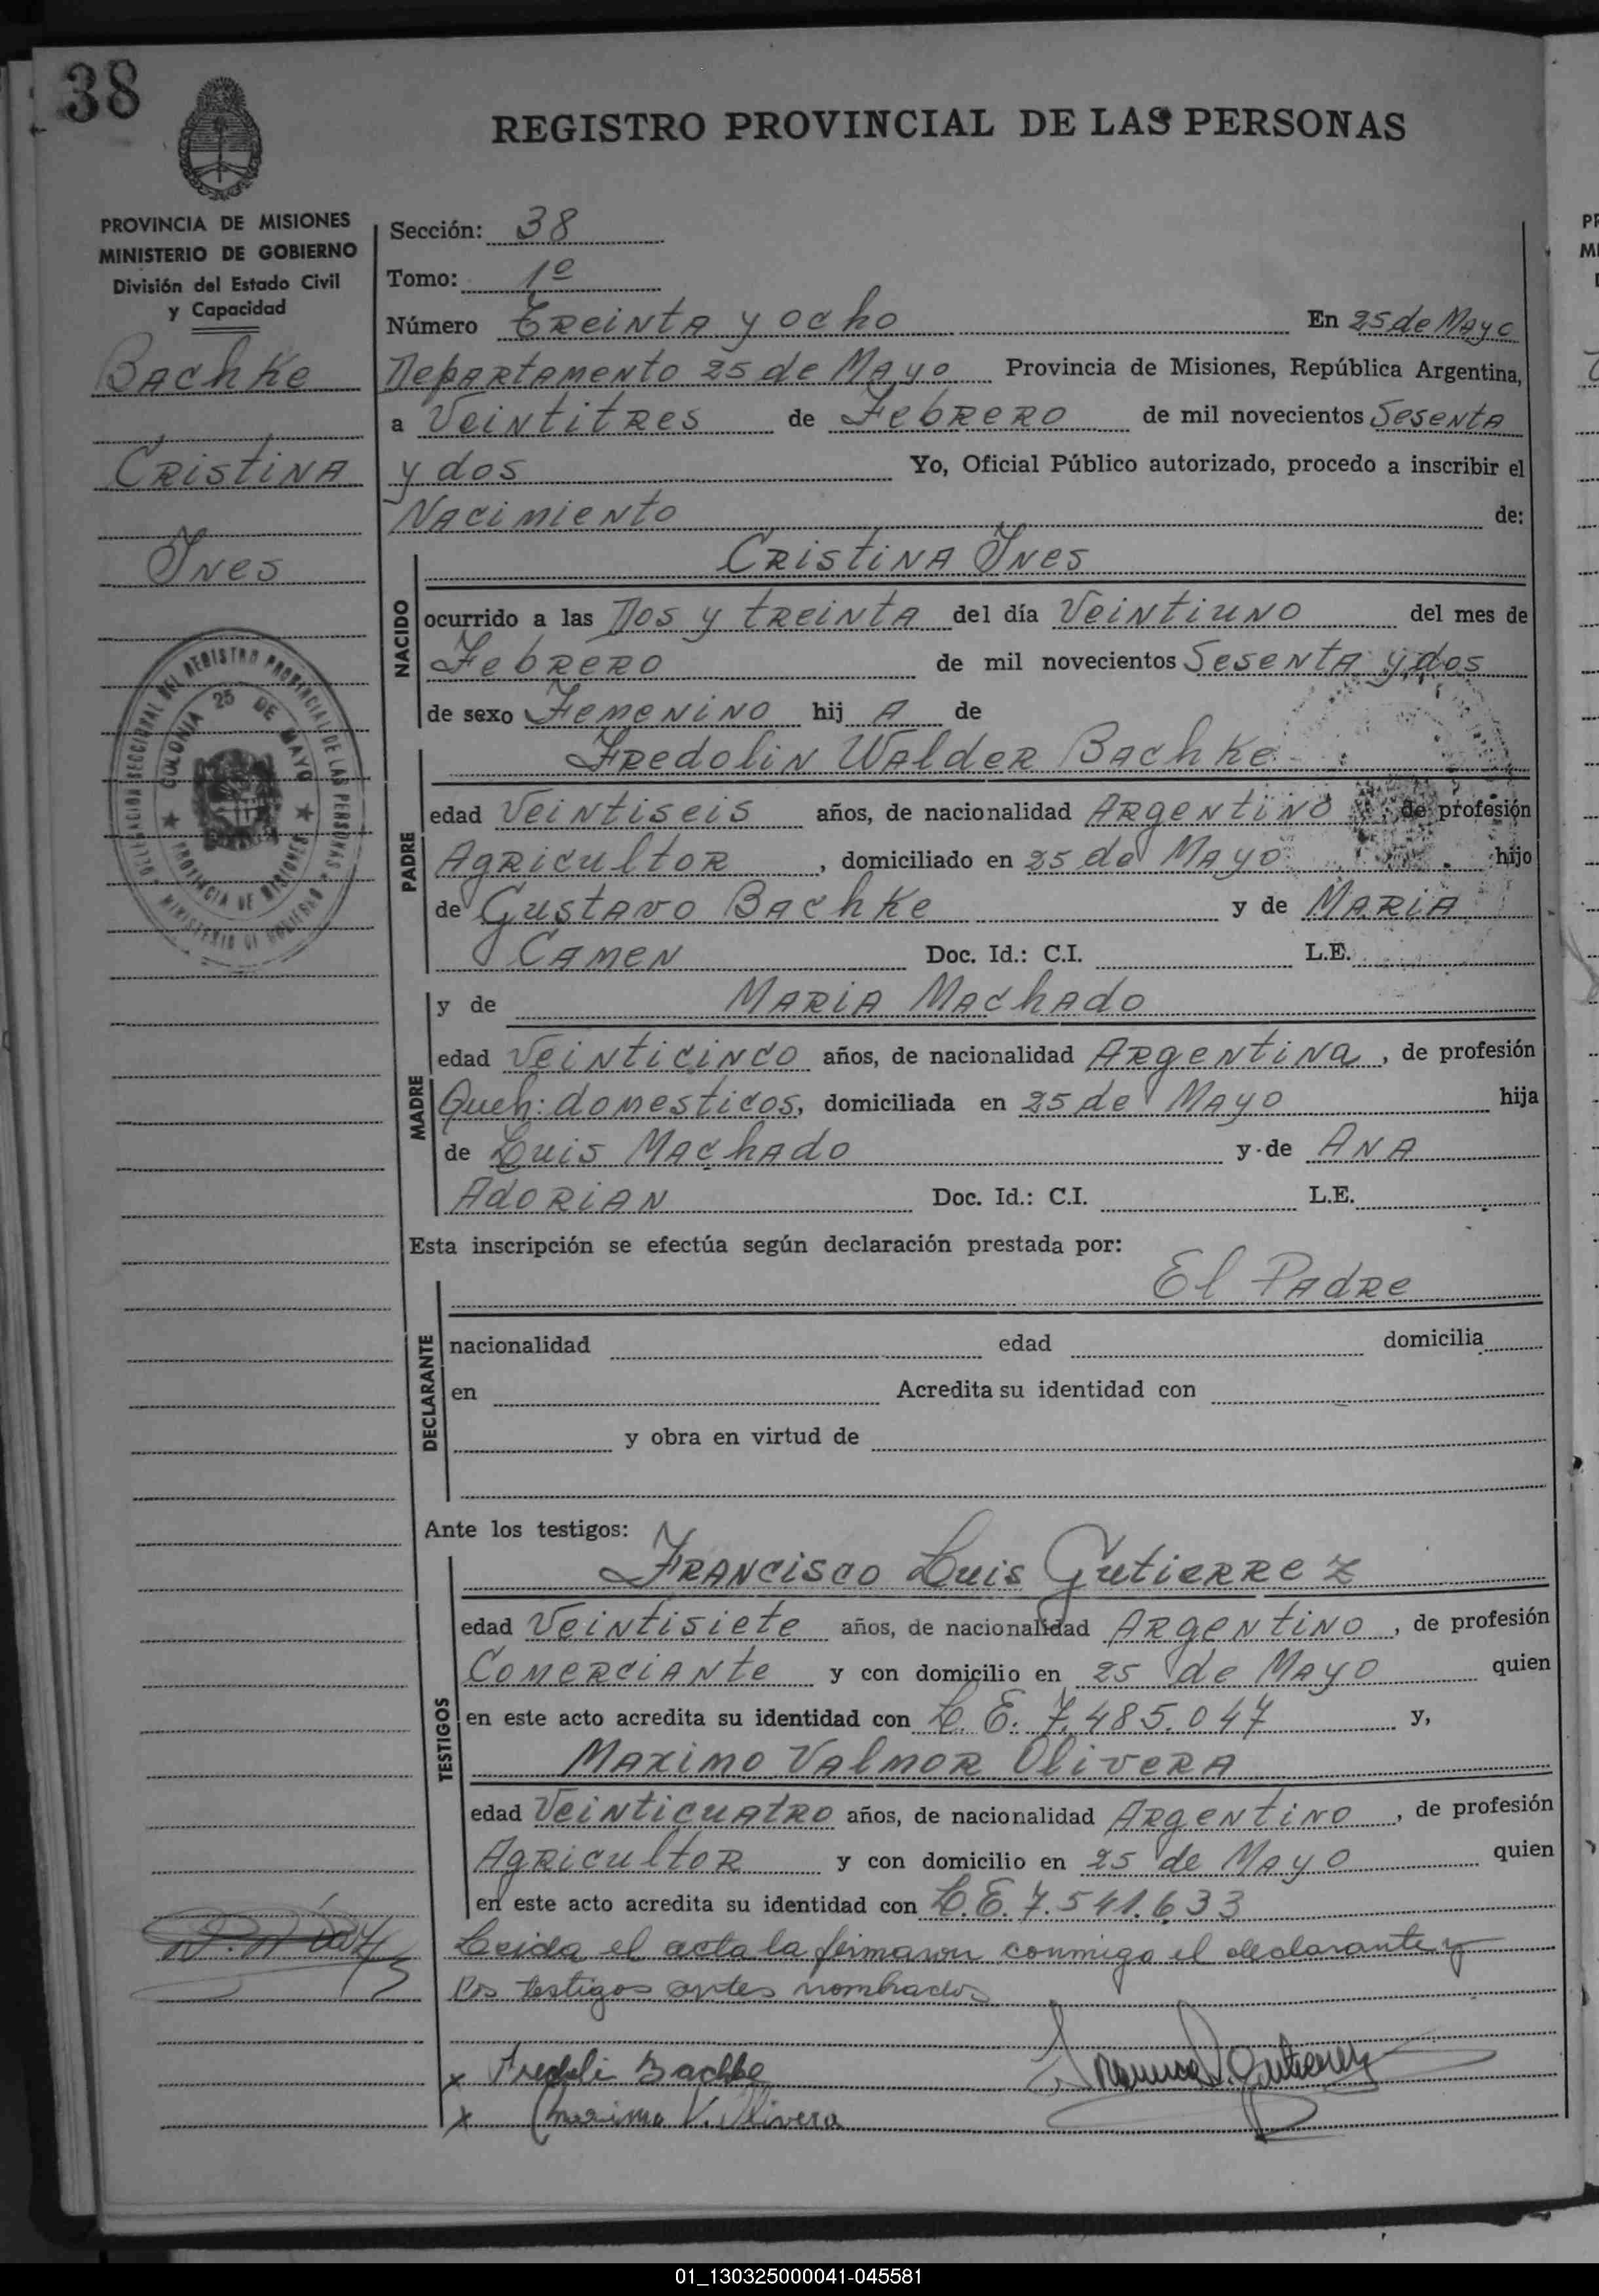 38
REGISTRO PROVINCIAL DE LAS PERSONAS
PROVINCIA DE MISIONES
MINISTERIO DE GOBIERNO
División del Estado Civil
y Capacidad
Bachke
Cristina
Ines
DELEGACION SECCIONAL DEL REGISTRO PROVINCIAL DE LAS PERSONAS
COLONIA 25 DE MAYO
PROVINCIA DE MISIONES
MINISTERIO DE GOBIERNO
Sección: 38
Tomo: 1º
Número Treinta y ocho En 25 de Mayo
Departamento 25 de Mayo Provincia de Misiones, República Argentina,
a Veintitres de Febrero de mil novecientos Sesenta
y dos Yo, Oficial Público autorizado, procedo a inscribir el
Nacimiento de:
NACIDO
Cristina Ines
ocurrido a las Dos y treinta del día Veintiuno del mes de
Febrero de mil novecientos Sesenta y dos
de sexo Femenino hij A de
PADRE
Fredolin Walder Bachke
edad Veintiseis años, de nacionalidad Argentino de profesión
Agricultor, domiciliado en 25 de Mayo hijo
de Gustavo Bachke y de Maria
Camen Doc. Id.: C.I. L.E.
MADRE
y de Maria Machado
edad Veinticinco años, de nacionalidad Argentina, de profesión
Queh: domesticos, domiciliada en 25 de Mayo hija
de Luis Machado y de Ana
Adorian Doc. Id.: C.I. L.E.
Esta inscripción se efectúa según declaración prestada por:
DECLARANTE
El Padre
nacionalidad edad domicilia
en Acredita su identidad con
y obra en virtud de
Ante los testigos:
TESTIGOS
Francisco Luis Gutierrez
edad Veintisiete años, de nacionalidad Argentino, de profesión
Comerciante y con domicilio en 25 de Mayo quien
en este acto acredita su identidad con L.E. 7.485.047 y,
Maximo Valmor Olivera
edad Veinticuatro años, de nacionalidad Argentino, de profesión
Agricultor y con domicilio en 25 de Mayo quien
en este acto acredita su identidad con L.E. 7.541.633
Leida el acta la firmaron conmigo el declarante y
los testigos antes nombrados
x Fredoli Bachke
x Maximo V. Olivera
01_130325000041-045581